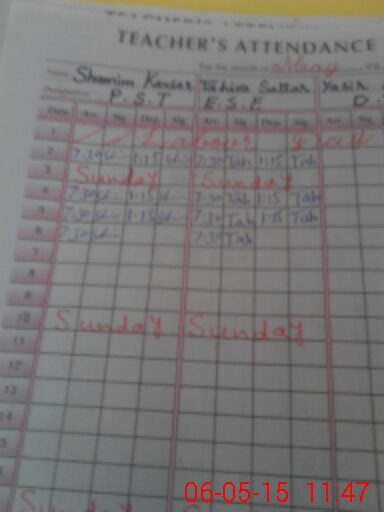 TEACHER'S ATTENDANCE
For the month of May
Name Shamim Kausar Tahira Sattar Yasir
Designation P.S.T E.S.E D.
Date Arr. Sig. Dep. Sig. Arr. Sig. Dep. Sig. Arr. Sig. Dep.
1 Labour Day
2 7:30 Sh 1:15 Sh 7:30 Tah 1:15 Tah
3 Sunday Sunday
4 7:30 Sh 1:15 Sh 7:30 Tah 1:15 Tah
5 7:30 Sh 1:15 Sh 7:30 Tah 1:15 Tah
6 7:30 Sh 7:30 Tah
7
8
9
10 Sunday Sunday
11
12
13
14
15
Sunday
06-05-15 11:47